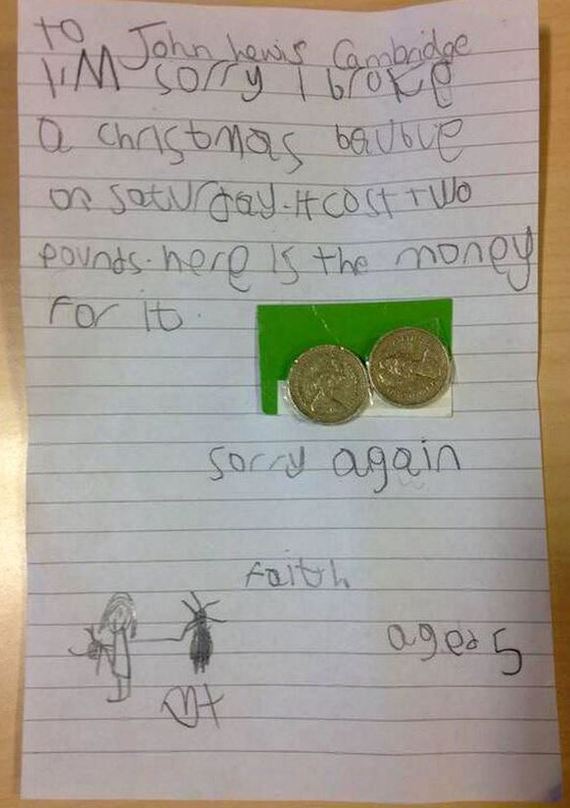 to John Lewis Cambridge
I'M sorry I broke
a christmas bauble
on saturday. It cost two
pounds. here is the money
for it.
sorry again
Faith
aged 5